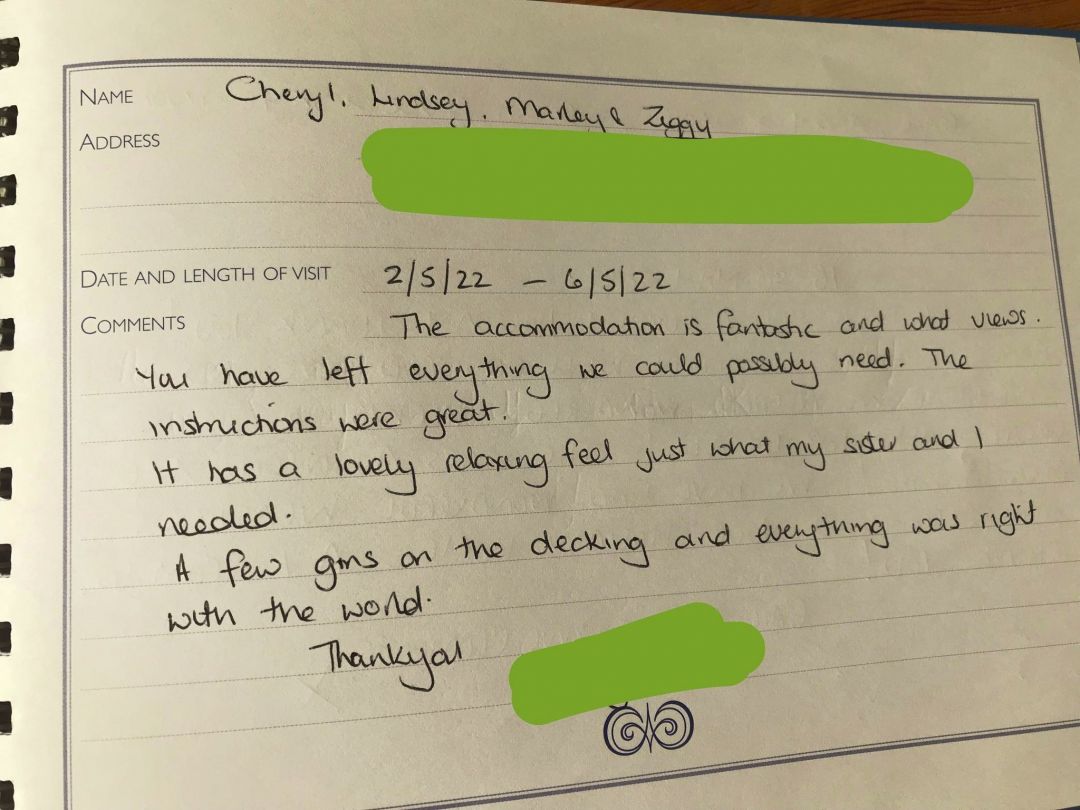 NAME Cheryl, Lindsey, Marley & Ziggy
ADDRESS
DATE AND LENGTH OF VISIT 2/5/22 – 6/5/22
COMMENTS The accommodation is fantastic and what views.
You have left everything we could possibly need. The
instructions were great.
It has a lovely relaxing feel just what my sister and I
needed.
A few gins on the decking and everything was right
with the world.
Thankyou